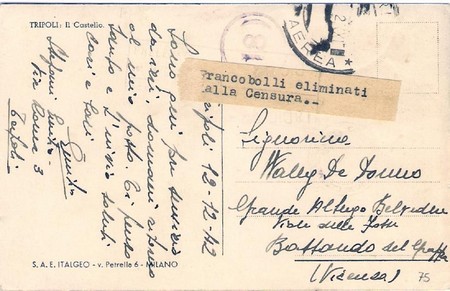 TRIPOLI: Il Castello.
Tripoli 12-12-42
Sono qui per servizio
da ieri, domani ritorno
al mio posto. Ti penso
tanto e t'invio saluti
cari e tanti
Guido
Stefani Guido
Via Roma 3
Tripoli
S. A. E. ITALGEO - v. Petrella 6 - MILANO
81
AEREA
Francobolli eliminati
dalla Censura.-
Signorina
Wally De Donno
Grande Albergo Belvedere
Viale delle Fosse
Bassano del Grappa
(Vicenza)
75